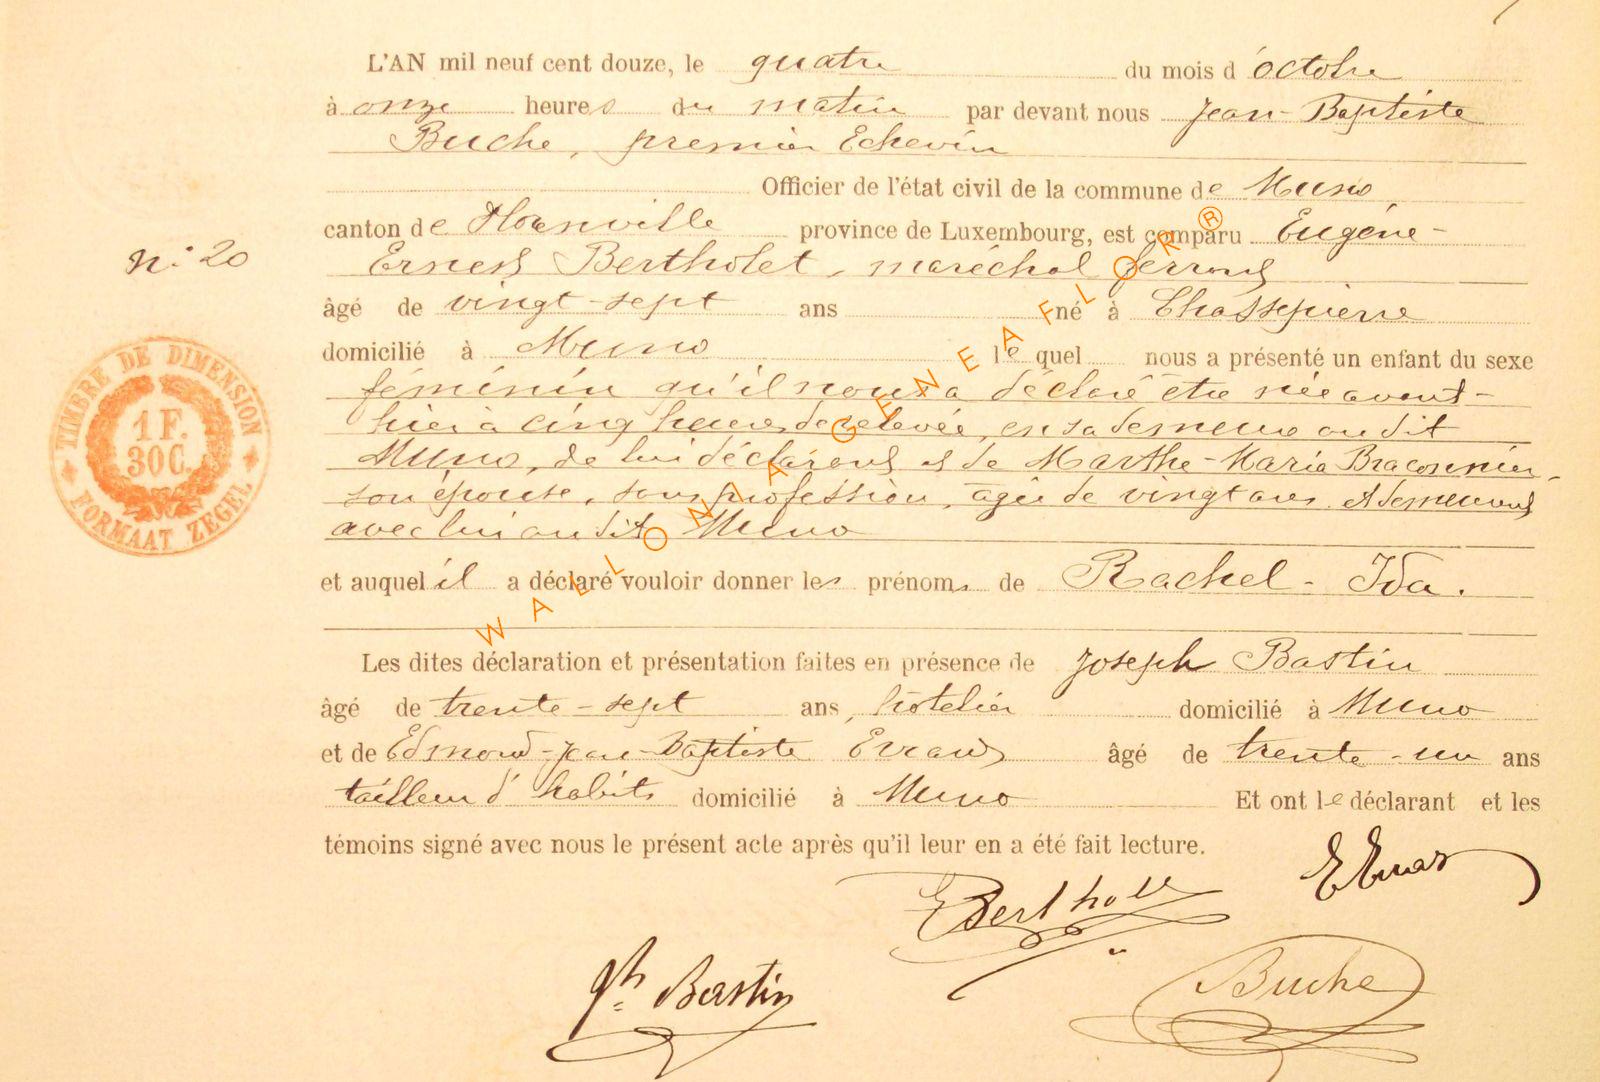 L'AN mil neuf cent douze, le quatre du mois d'octobre
à onze heures du matin par devant nous Jean-Baptiste
Buche, premier Echevin
Officier de l'état civil de la commune de Muno
canton de Florenville province de Luxembourg, est comparu Eugène-
Ernest Bertholet, maréchal ferrant
âgé de vingt-sept ans né à Chassepierre
domicilié à Muno lequel nous a présenté un enfant du sexe
féminin qu'il nous a déclaré être née avant-
hier à cinq heures de relevée, en sa demeure audit
Muno, de lui déclarant et de Marthe-Maria Braconnier,
son épouse, sans profession, âgée de vingt ans et demeurant
avec lui audit Muno
et auquel il a déclaré vouloir donner les prénoms de Rachel-Ida.
Les dites déclaration et présentation faites en présence de Joseph Bastin
âgé de trente-sept ans, hôtelier domicilié à Muno
et de Edmond-Jean-Baptiste Evrard âgé de trente-un ans
tailleur d'habits domicilié à Muno Et ont le déclarant et les
témoins signé avec nous le présent acte après qu'il leur en a été fait lecture.
N° 20
TIMBRE DE DIMENSION
1 F.
30 C.
FORMAAT ZEGEL
WALLONIA GENEAFLOR ®
E Evrard
E Bertholet
Jh Bastin
Buche